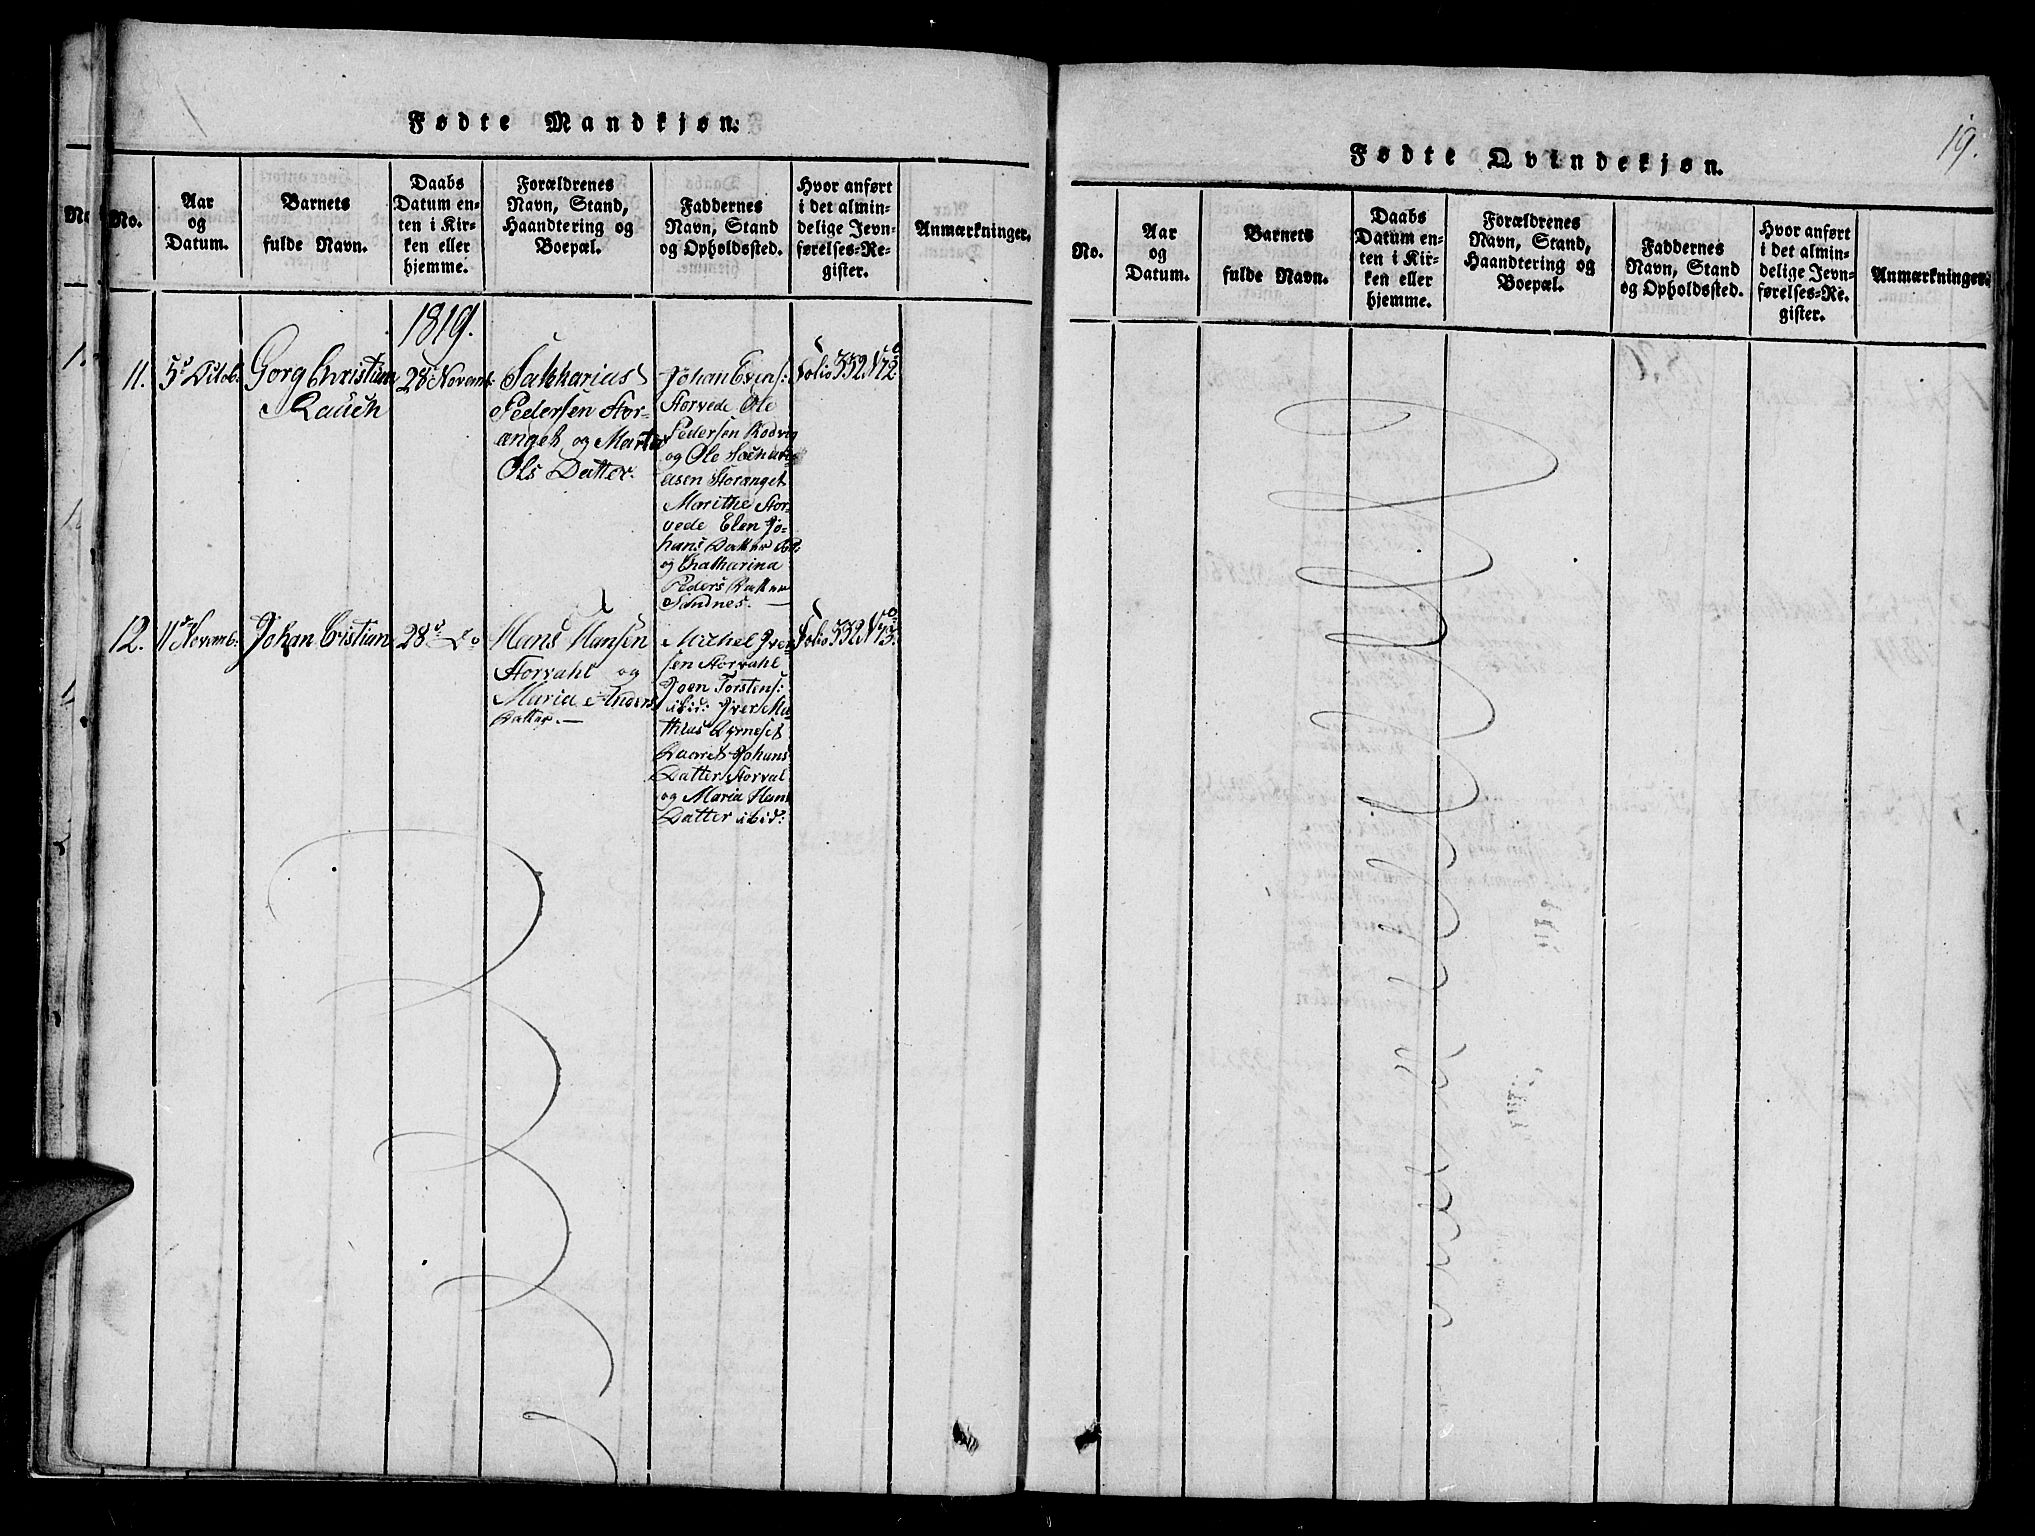 Fødte Mandkjøn.
No.
Aar
og
Datum.
Barnets
fulde Navn.
Daabs
Datum en-
ten i Kir-
ken eller
hjemme.
Forældrenes
Navn, Stand,
Haandtering og
Boepæl.
Faddernes
Navn, Stand
og Opholdssted.
Hvor anført
i det almin-
delige Jevn-
førelses-Re-
gister.
Anmærkninger.
1819.
11.
5d Octob.
Gorg Christian
Rauch
28d Novemb.
Sakharias
Pedersen Stor-
ænget og Marta
Ols Datter.
Johan Evens:
Storvede Ole
Pedersen Rodvig
og Ole
asen Storænget
Marithe Stor-
vede Elen Jo-
hans Datter
og Chatharina
Peders Datter
Sandnes.
Folio 332 No 72.
12.
11d Novemb.
Johan Cristian
28d Do
Hans Hansen
Storvahl og
Maria Anders
Datter.
Michel Iver-
sen Storvahl
Joen Torstens:
ibid: Iver Ma-
thias Dyrneset
Laaret Johans
Datter Storval
og Maria Hans
Datter ibid:
Folio 332 No 73.
19.
Fødte Qvindekjøn.
No.
Aar
og
Datum.
Barnets
fulde Navn.
Daabs
Datum en-
ten i Kir-
ken eller
hjemme.
Forældrenes
Navn, Stand,
Haandtering og
Boepæl.
Faddernes
Navn, Stand
og Opholdssted.
Hvor anført
i det almin-
delige Jevn-
førelses-Re-
gister.
Anmærkninger.